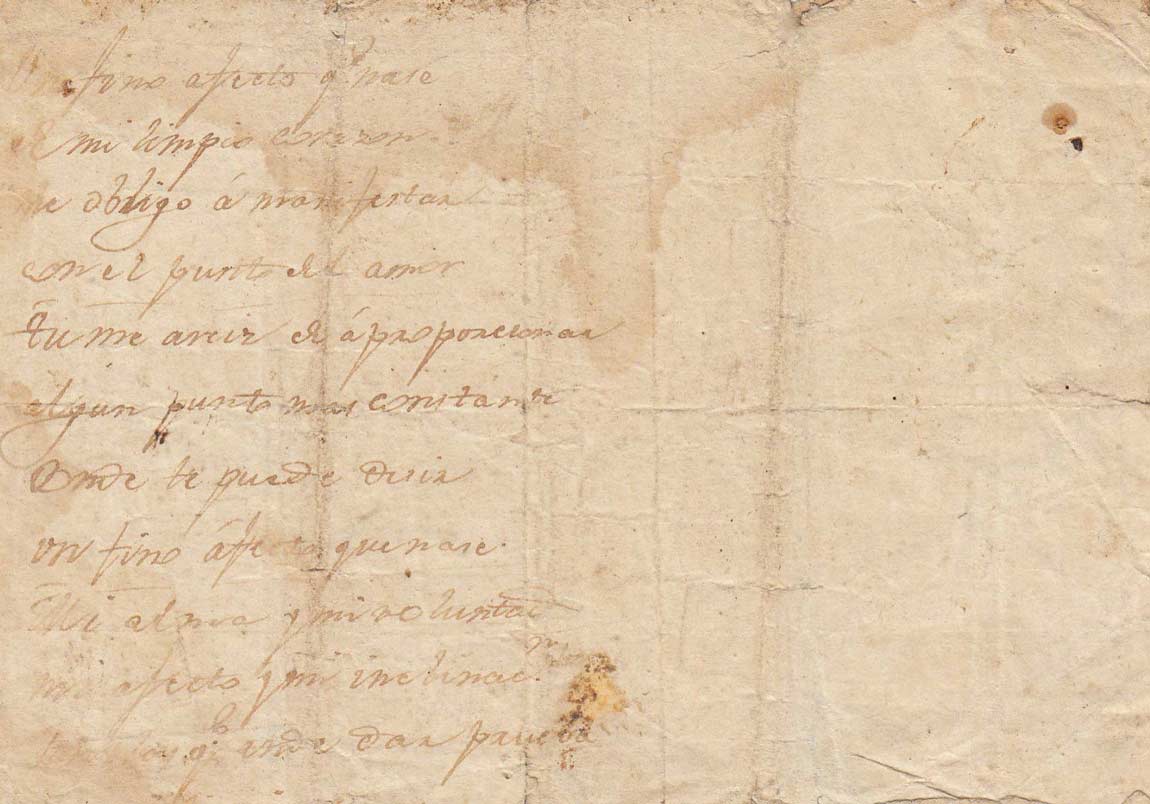 Un fino afecto q.e nase
de mi limpio corazon
me obligo á manifestar
con el punto del amor
tu me areiz de á proporcionar
algun punto mas constante
Donde te puede desir
un fino áfecto que nase
Mi alma y mi voluntad
mi afecto y mi inclinac.n
q.e ande dar prueba